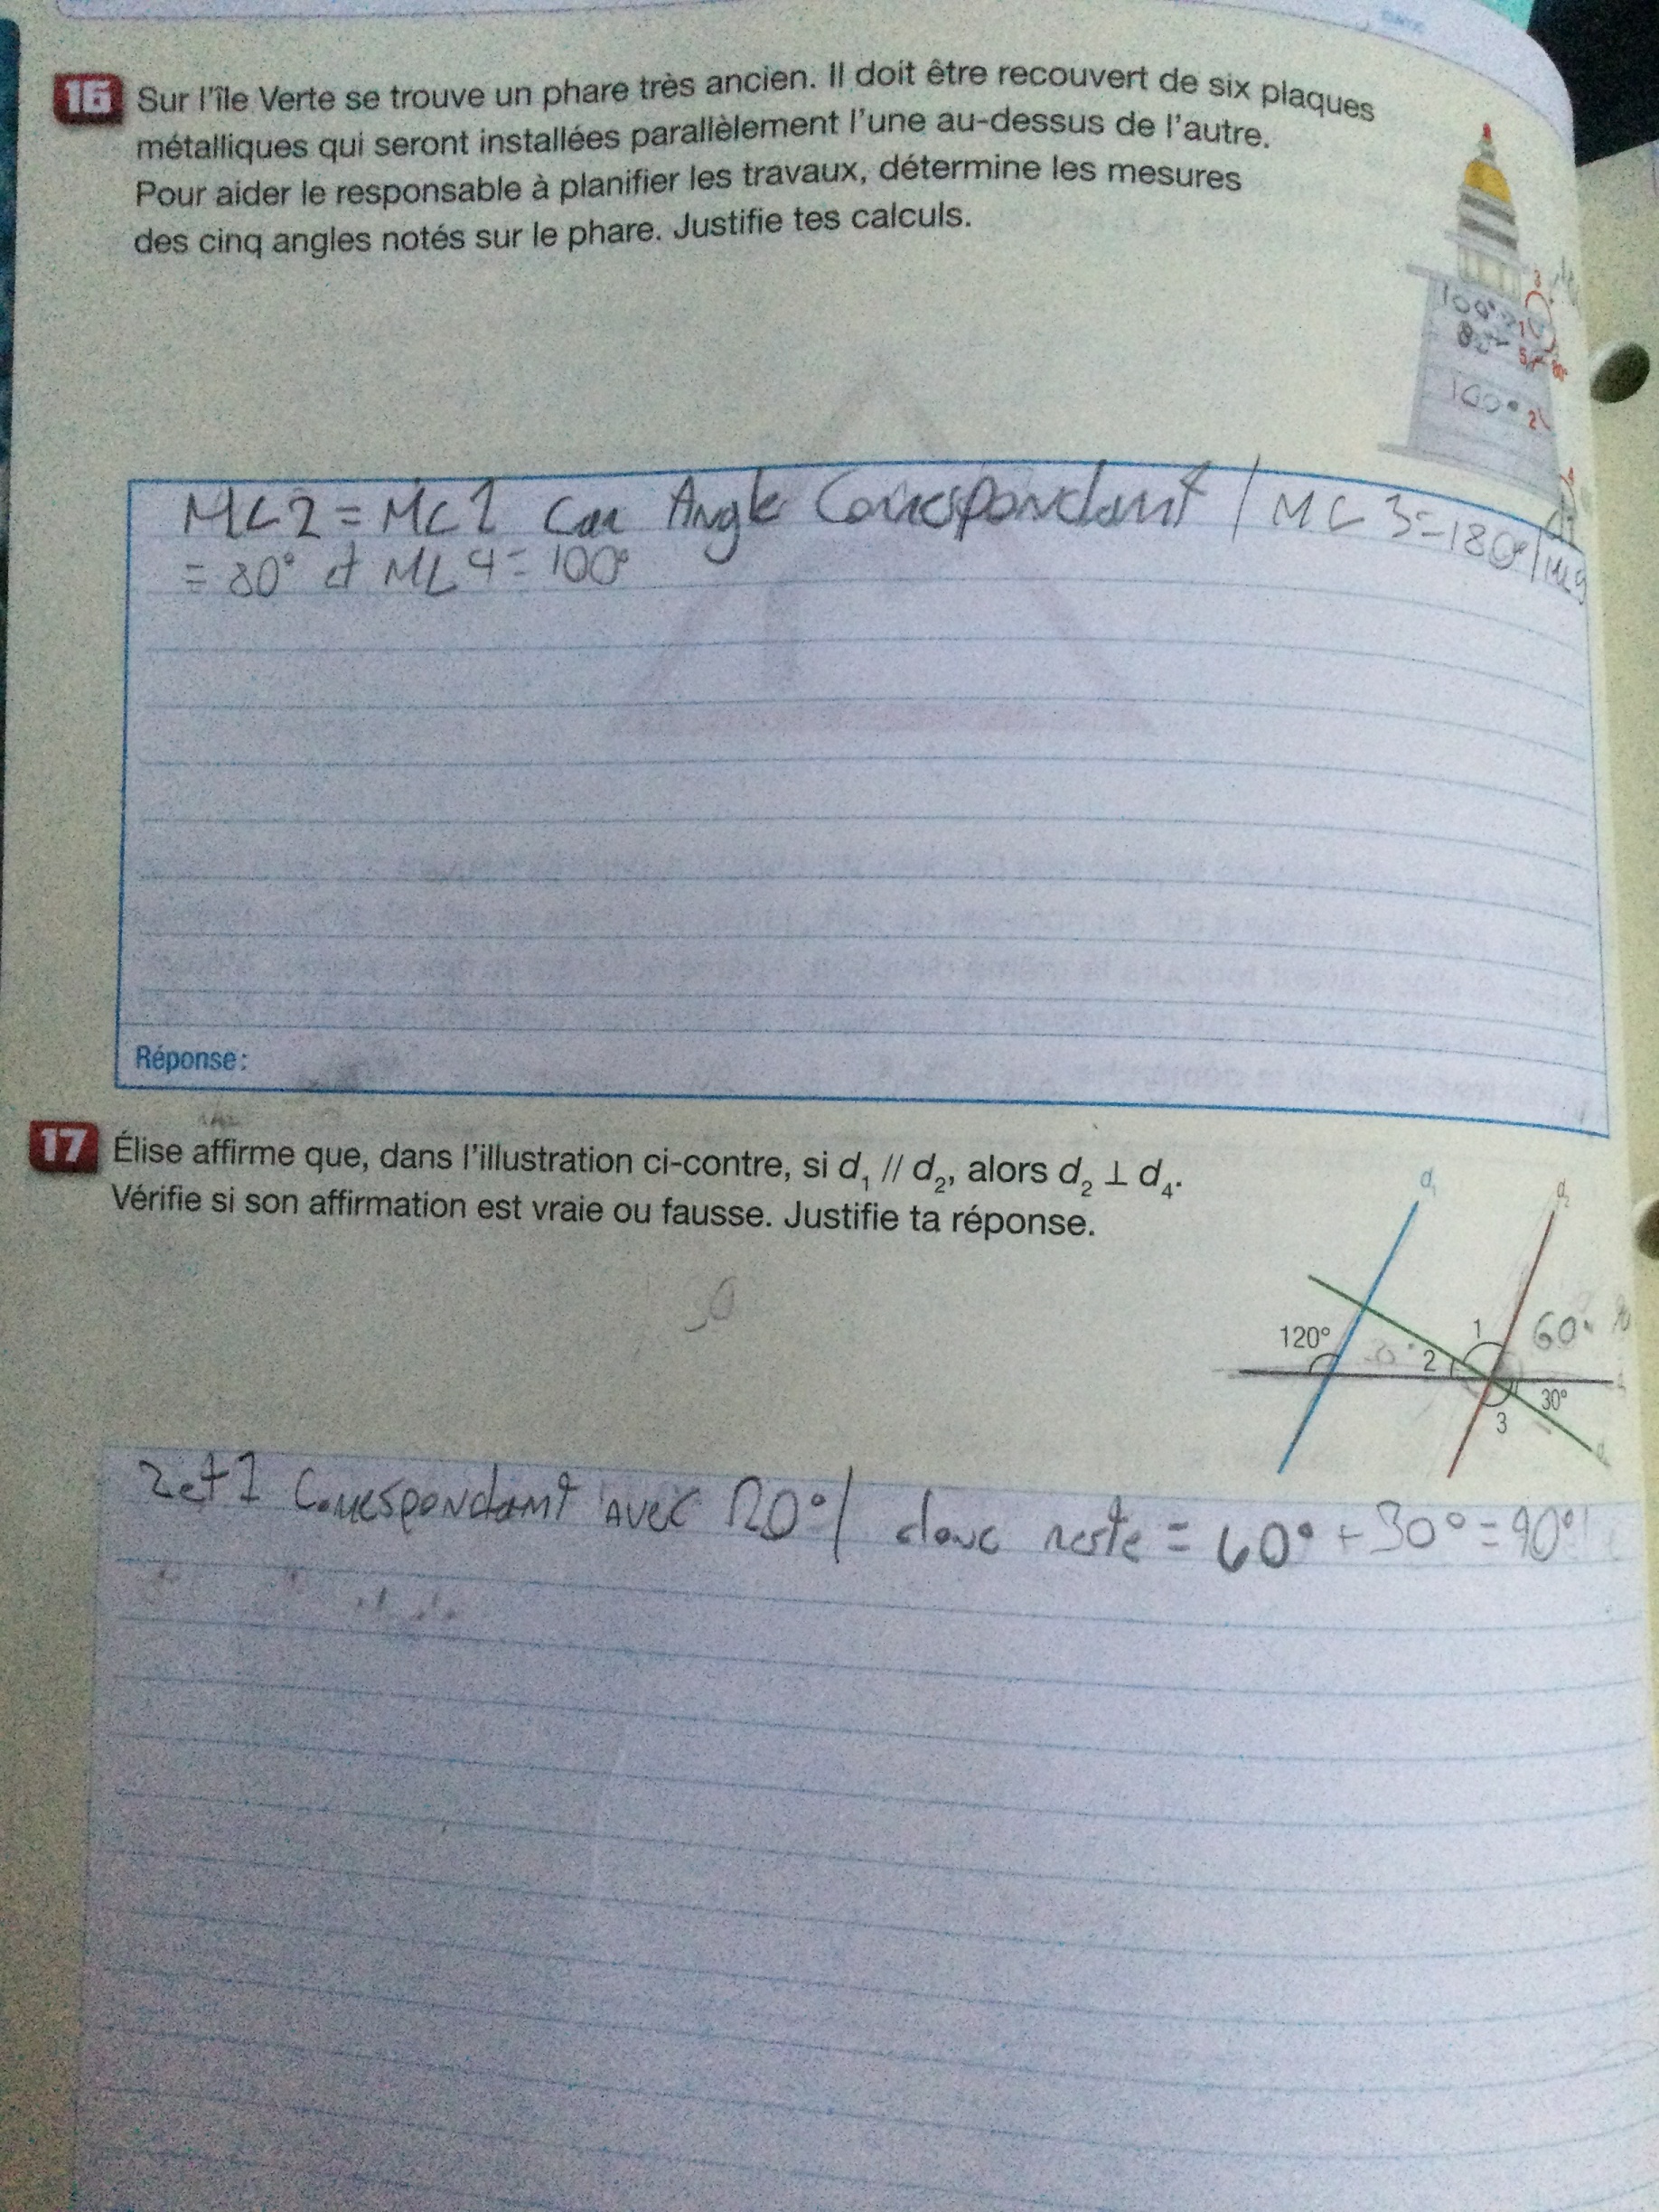 16 Sur l'île Verte se trouve un phare très ancien. Il doit être recouvert de six plaques
métalliques qui seront installées parallèlement l'une au-dessus de l'autre.
Pour aider le responsable à planifier les travaux, détermine les mesures
des cinq angles notés sur le phare. Justifie tes calculs.
3
100°
1
80°
5
100° 2
M∠2 = M∠1 Car Angle Correspondant / M∠3 = 180° /
= 80° et M∠4 = 100°
Réponse :
17 Élise affirme que, dans l'illustration ci-contre, si d₁ // d₂, alors d₂ ⊥ d₄.
Vérifie si son affirmation est vraie ou fausse. Justifie ta réponse.
d₁ d₂
120° 2 1 60°
3 30°
2 et 1 Correspondant avec 120° / donc reste = 60° + 30° = 90°